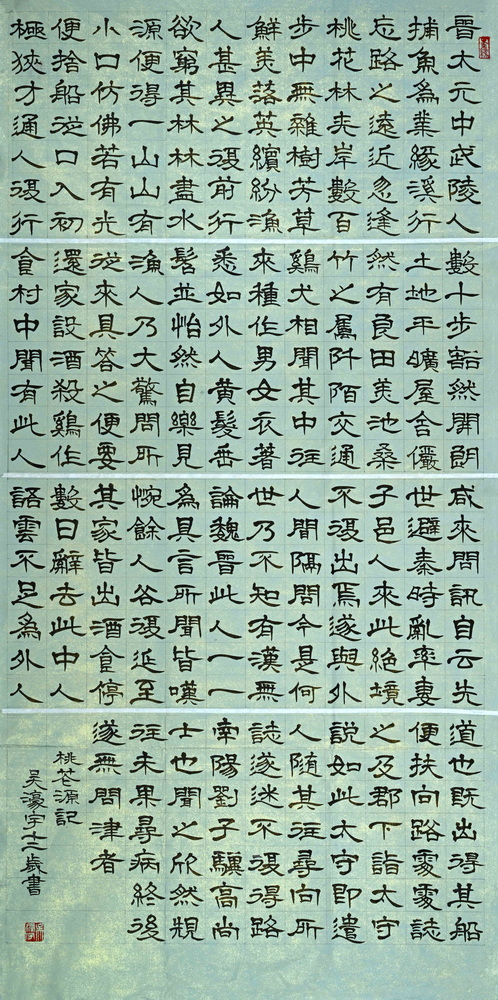 晉太元中武陵人
捕魚為業緣溪行
忘路之遠近忽逢
桃花林夾岸數百
步中無雜樹芳草
鮮美落英繽紛漁
人甚異之復前行
欲窮其林林盡水
源便得一山山有
小口仿佛若有光
便捨船從口入初
極狹才通人復行
數十步豁然開朗
土地平曠屋舍儼
然有良田美池桑
竹之屬阡陌交通
鷄犬相聞其中往
來種作男女衣著
悉如外人黃髮垂
髫並怡然自樂見
漁人乃大驚問所
從來具答之便要
還家設酒殺鷄作
食村中聞有此人
咸來問訊自云先
世避秦時亂率妻
子邑人來此絕境
不復出焉遂與外
人間隔問今是何
世乃不知有漢無
論魏晉此人一一
為具言所聞皆嘆
惋餘人各復延至
其家皆出酒食停
數日辭去此中人
語雲不足為外人
道也既出得其船
便扶向路處處誌
之及郡下詣太守
說如此太守即遣
人隨其往尋向所
誌遂迷不復得路
南陽劉子驥高尚
士也聞之欣然規
往未果尋病終後
遂無問津者
桃花源記
吳濠宇十二歲書